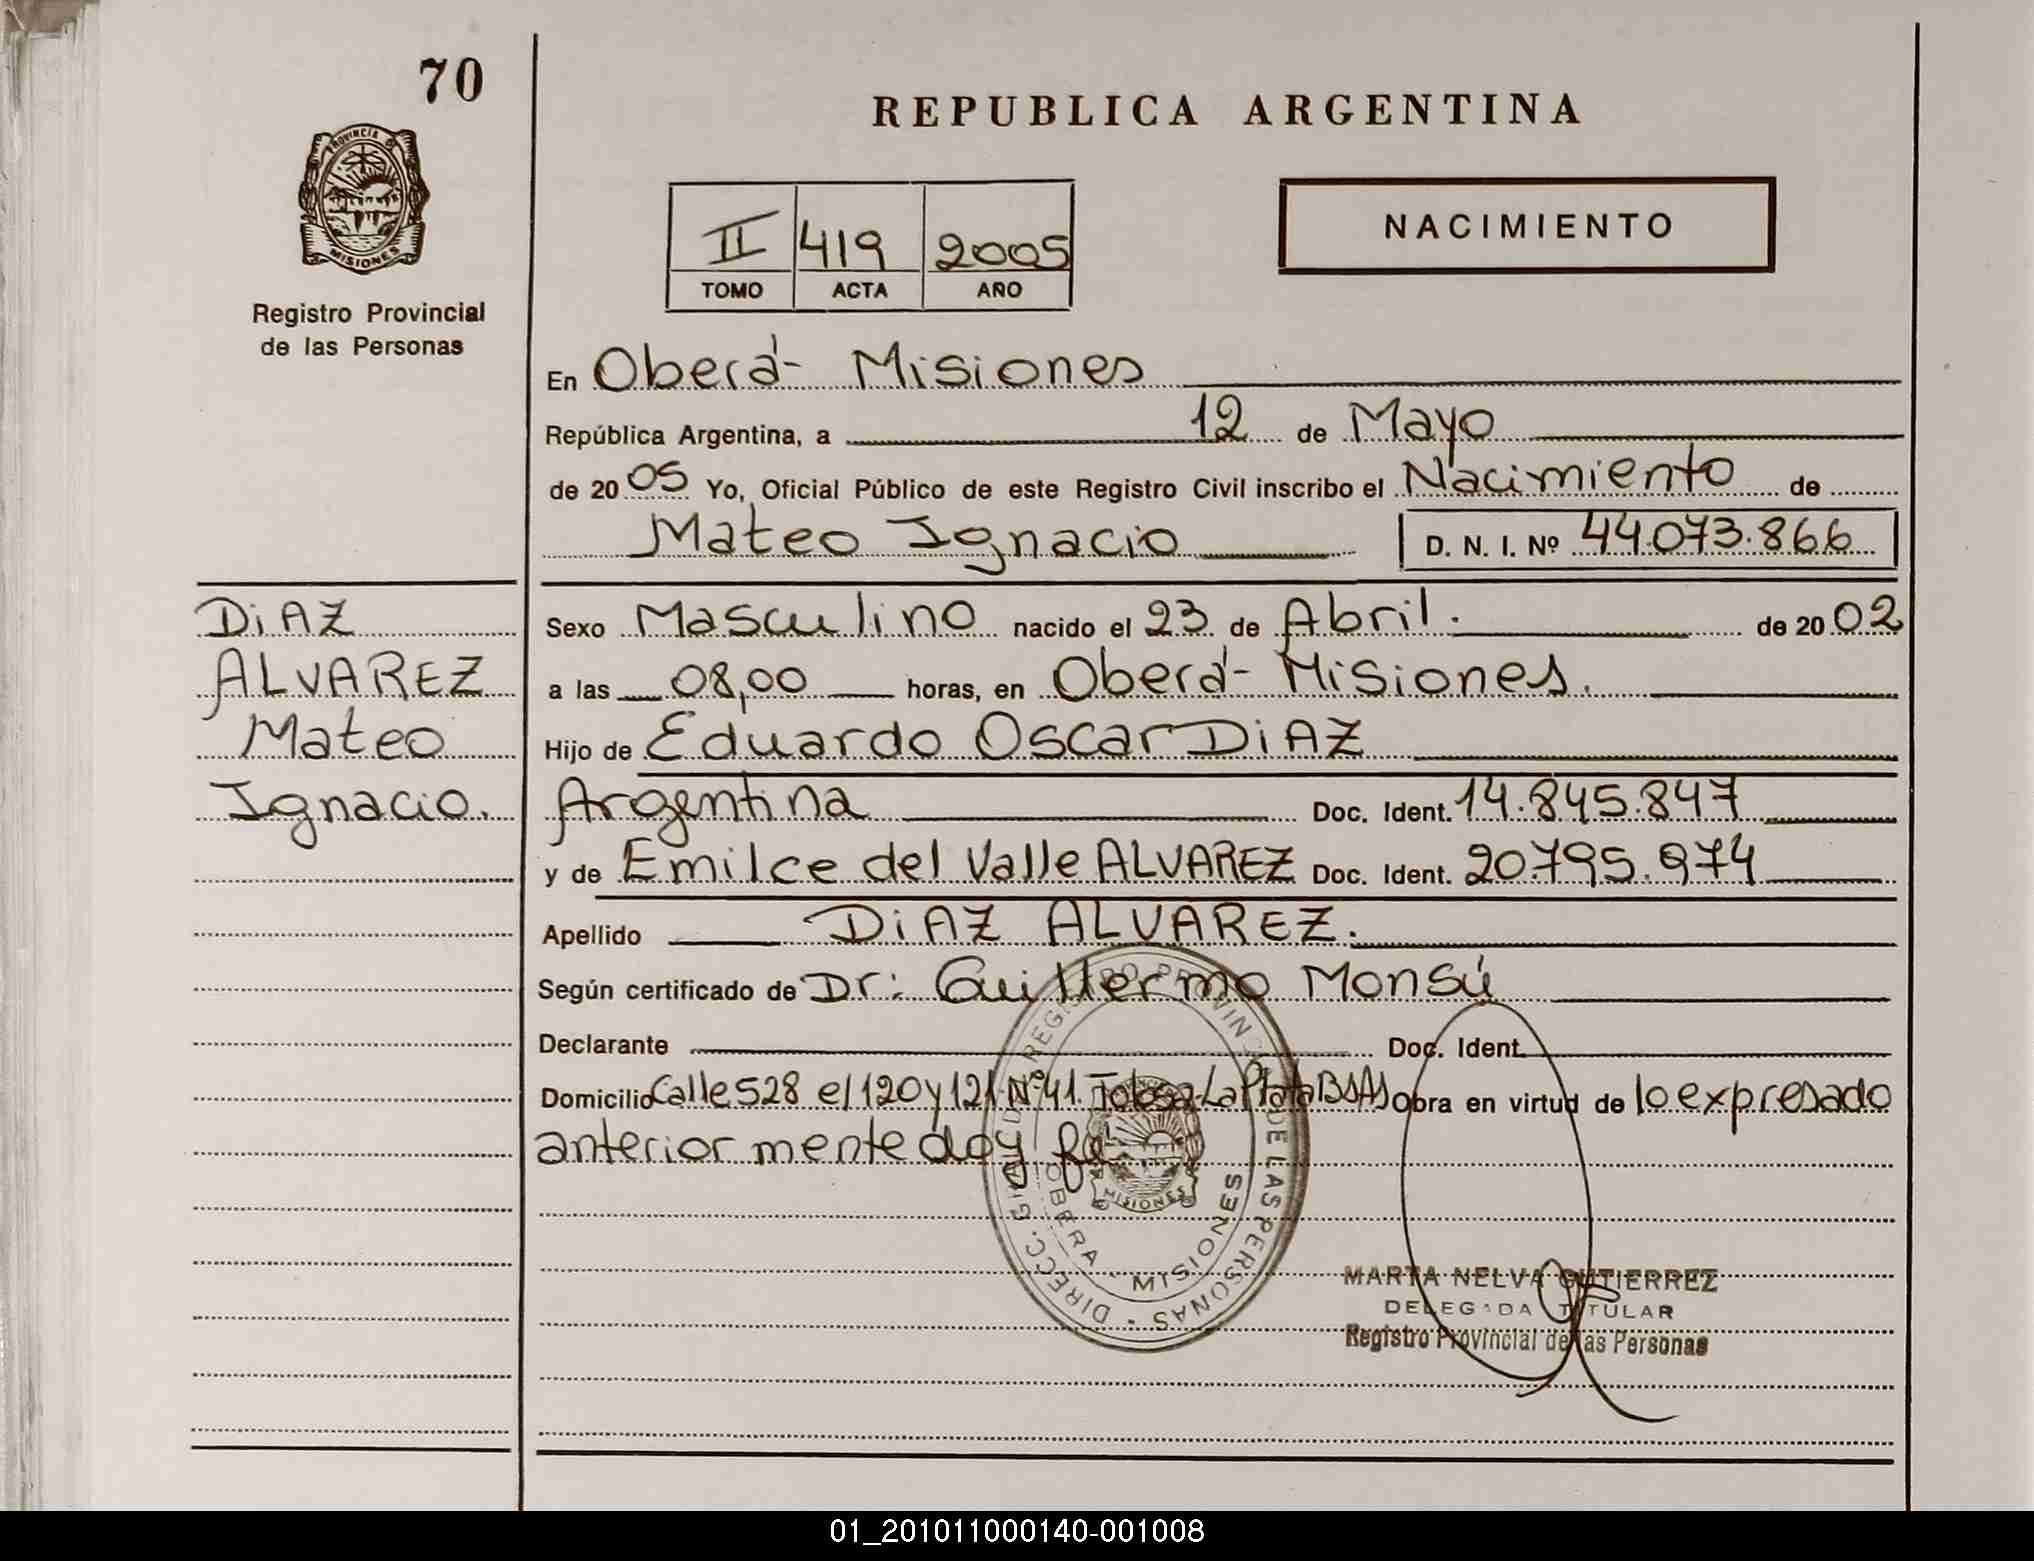 70
REPUBLICA ARGENTINA
PROVINCIA DE
MISIONES
Registro Provincial
de las Personas
II 419 2005
TOMO ACTA AÑO
NACIMIENTO
En Oberá- Misiones
República Argentina, a 12 de Mayo
de 2005 Yo, Oficial Público de este Registro Civil inscribo el Nacimiento de
Mateo Ignacio D. N. I. Nº 44.073.866
DiAZ
ALVAREZ
Mateo
Ignacio.
Sexo Masculino nacido el 23 de Abril. de 2002
a las 08,00 horas, en Oberá- Misiones.
Hijo de Eduardo Oscar DiAZ
Argentina Doc. Ident. 14.845.847
y de Emilce del Valle ALVAREZ Doc. Ident. 20.795.974
Apellido DiAZ ALVAREZ.
Según certificado de Dr: Guillermo Monsú
Declarante Doc. Ident.
Domicilio Calle 528 e/120 y 121 Nº 41. Tolosa-La Plata BsAs Obra en virtud de lo expresado
anteriormente doy fe
DIRECC. GRAL. DEL REGISTRO PROVINCIAL DE LAS PERSONAS
OBERA - MISIONES
MISIONES
MARTA NELVA GUTIERREZ
DELEGADA TITULAR
Registro Provincial de las Personas
01_201011000140-001008